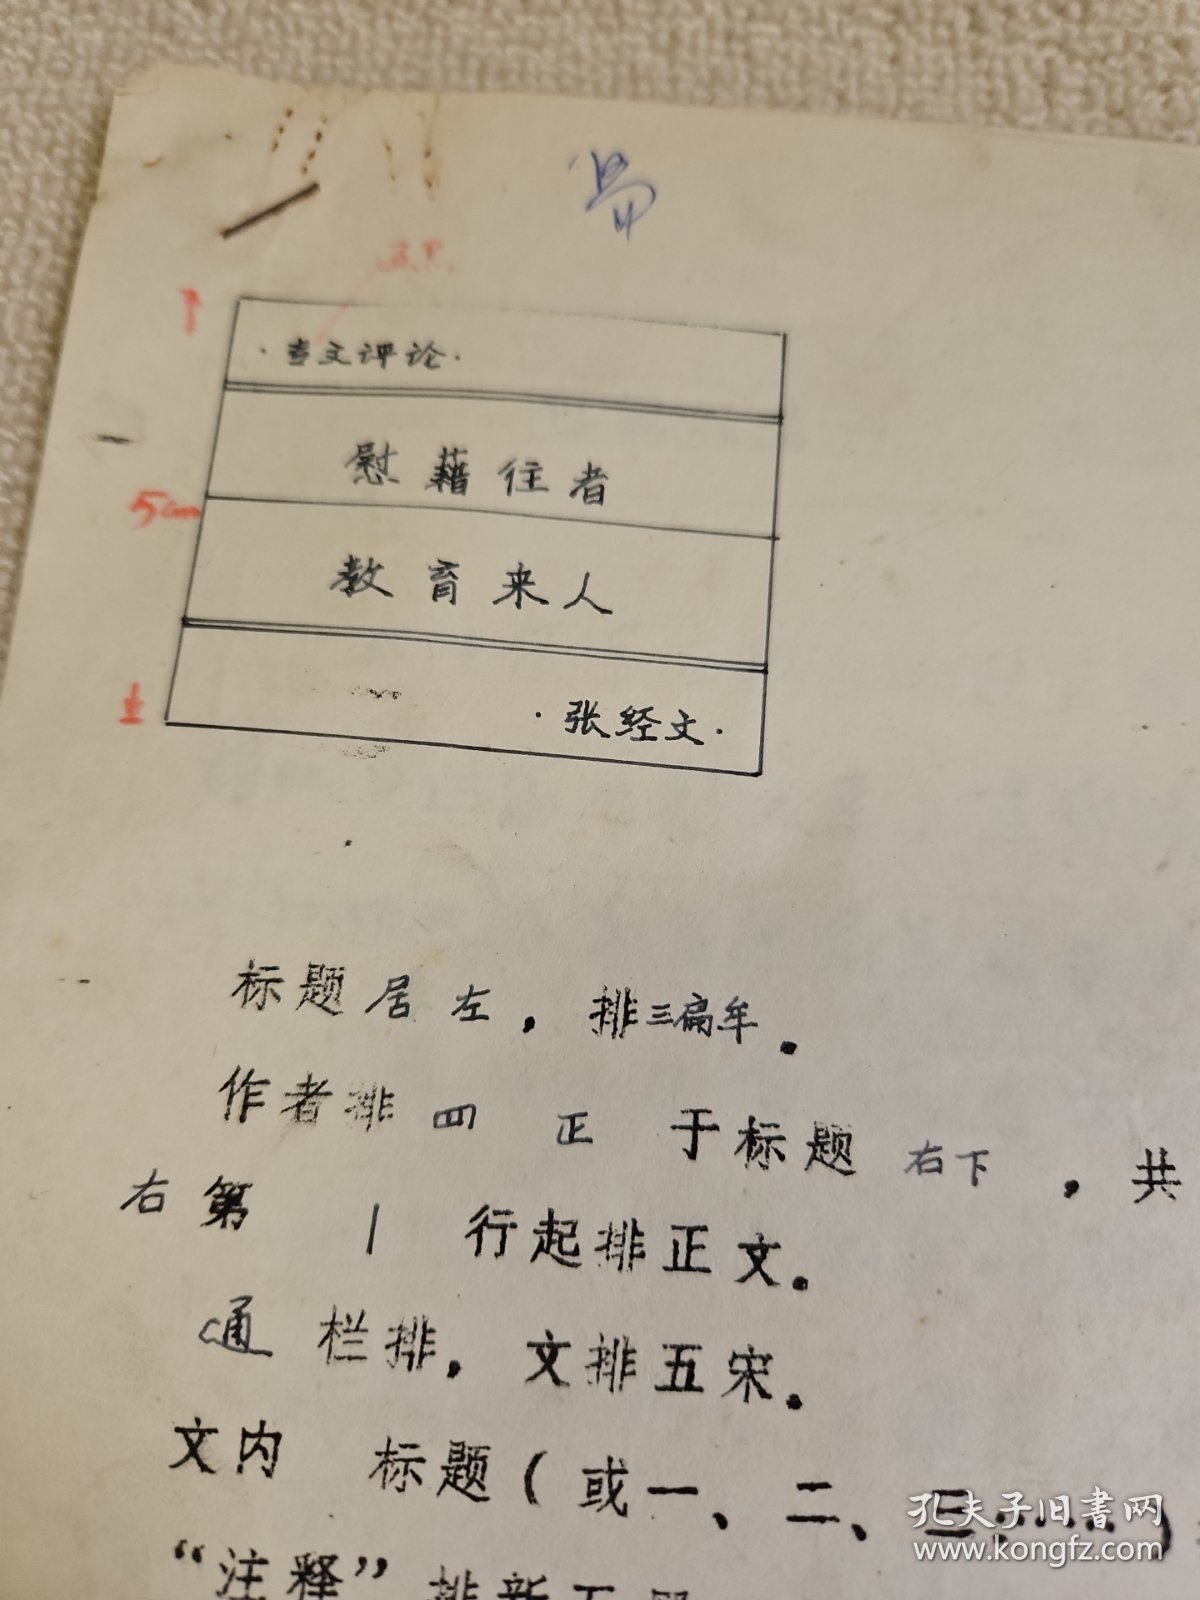 ·专文评论·
慰藉往者
5cm
教育来人
·张经文·
标题居左，排三扁牟。
作者排 四 正 于标题 右下，共
右第 1 行起排正文。
通栏排，文排五宋。
文内 标题（或一、二、三……）
“注释”排新五
孔夫子旧书网
www.kongfz.com